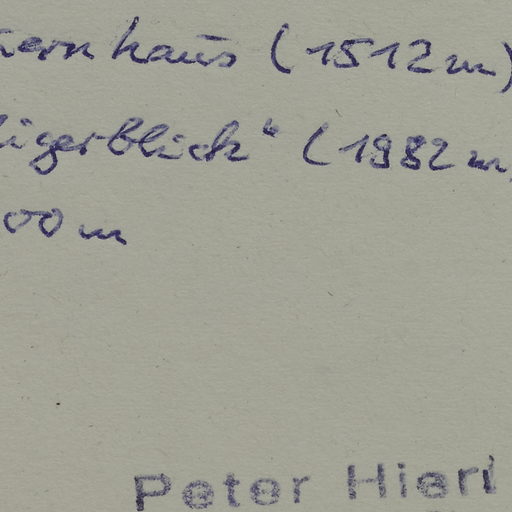 haus (1512m)
igerblick" (1982m
00 m
Peter Hierl